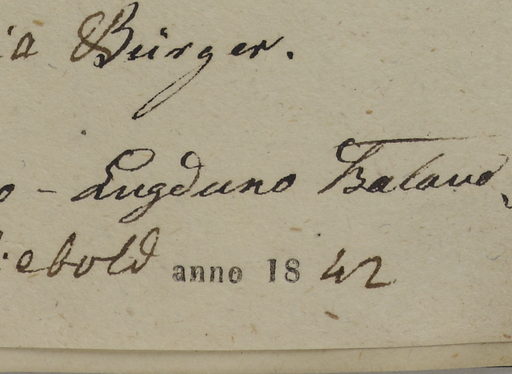 ia Bürger.
o - Lugduno Batavo,
iebold anno 1842